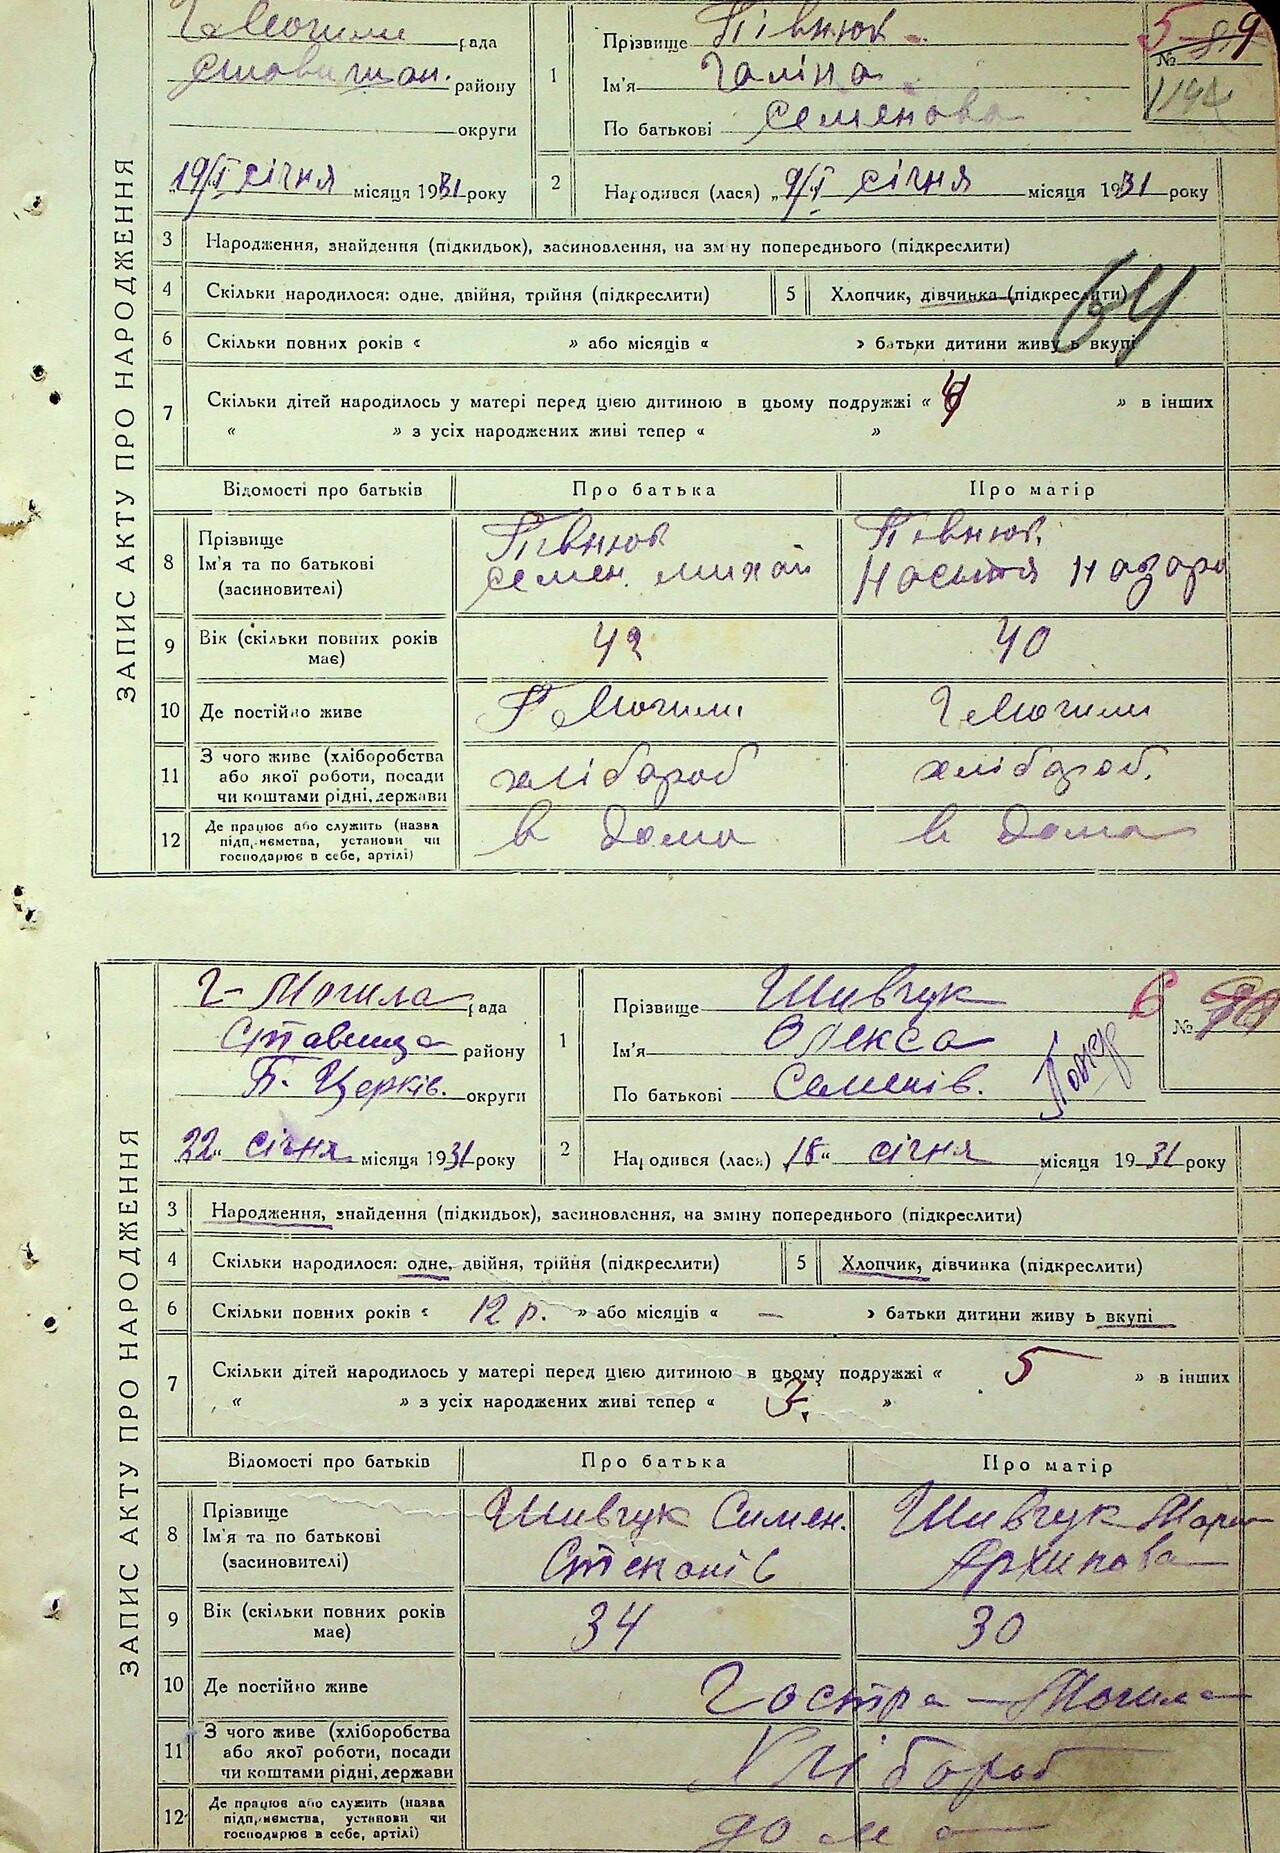 ЗАПИС АКТУ ПРО НАРОДЖЕННЯ
Г Могили рада
Ставищан. району
округи
19/I січня місяця 1931 року
1
Прізвище Півнюк
Ім'я Галіна
По батькові Семенова
5
№
1194
2
Народився (лася) „ 9/I січня місяця 1931 року
3 Народження, знайдення (підкидьок), засиновлення, на зміну попереднього (підкреслити)
4 Скільки народилося: одне, двійня, трійня (підкреслити) 5 Хлопчик, дівчинка (підкреслити)
64
6 Скільки повних років « » або місяців « » батьки дитини живуть вкупі
7 Скільки дітей народилось у матері перед цією дитиною в цьому подружжі « » в інших
« » з усіх народжених живі тепер « »
Відомості про батьків Про батька Про матір
8 Прізвище Ім'я та по батькові (засиновителі)
Півнюк Семен. михай
Півнюк. Настя Назаро
9 Вік (скільки повних років має) 42 40
10 Де постійно живе Г Могили Г Могили
11 З чого живе (хліборобства або якої роботи, посади чи коштами рідні, держави хлібароб хлібароб.
12 Де працює або служить (назва підприємства, установи чи господарює в себе, артілі) в дома в дома
ЗАПИС АКТУ ПРО НАРОДЖЕННЯ
Г- Могила рада
Ставище району
Б. Церків. округи
22„ січня місяця 1931 року
1
Прізвище Шивчук
Ім'я Олекса
По батькові Семенів.
6
№
2
Народився (лася) 18„ січня місяця 1931 року
3 Народження, знайдення (підкидьок), засиновлення, на зміну попереднього (підкреслити)
4 Скільки народилося: одне, двійня, трійня (підкреслити) 5 Хлопчик, дівчинка (підкреслити)
6 Скільки повних років « 12 р. » або місяців « — » батьки дитини живуть вкупі
7 Скільки дітей народилось у матері перед цією дитиною в цьому подружжі « 5 » в інших
« » з усіх народжених живі тепер « 3. »
Відомості про батьків Про батька Про матір
8 Прізвище Ім'я та по батькові (засиновителі)
Шивчук Симен. Степанів
Шивчук Мария Архипова
9 Вік (скільки повних років має) 34 30
10 Де постійно живе Гостра – Могила
11 З чого живе (хліборобства або якої роботи, посади чи коштами рідні, держави Хлібороб
12 Де працює або служить (назва підприємства, установи чи господарює в себе, артілі) дома